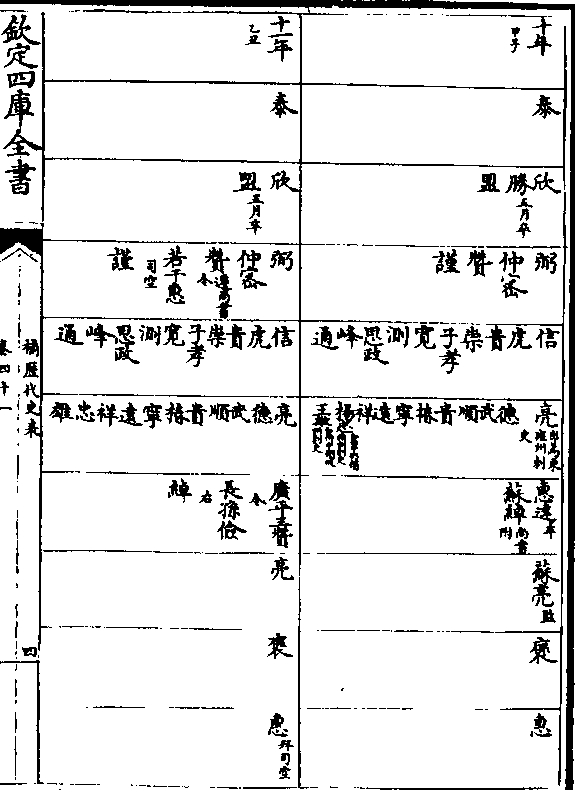 十年
甲子
泰
欣
勝五月卒
盟
弼
仲密
贊
謹
信
虎
貴
崇
子孝
寬
測
思政
峰
通
亮
德
武
順
貴
椿
寧
遠
祥
惠達卒
蘇綽
蘇亮監
褒
惠
十一年
乙丑
泰
欣
盟五月卒
弼
仲密
贊遷尚書令
若干惠司空
謹
信
虎
貴
崇
子孝
寬
測
思政
峰
通
亮
德
武
順
貴
椿
寧
遠
祥
忠
雄
廣平王贊令
長孫儉右
綽
亮
褒
惠拜司空
欽定四庫全書
歷代史表
卷四十一
四